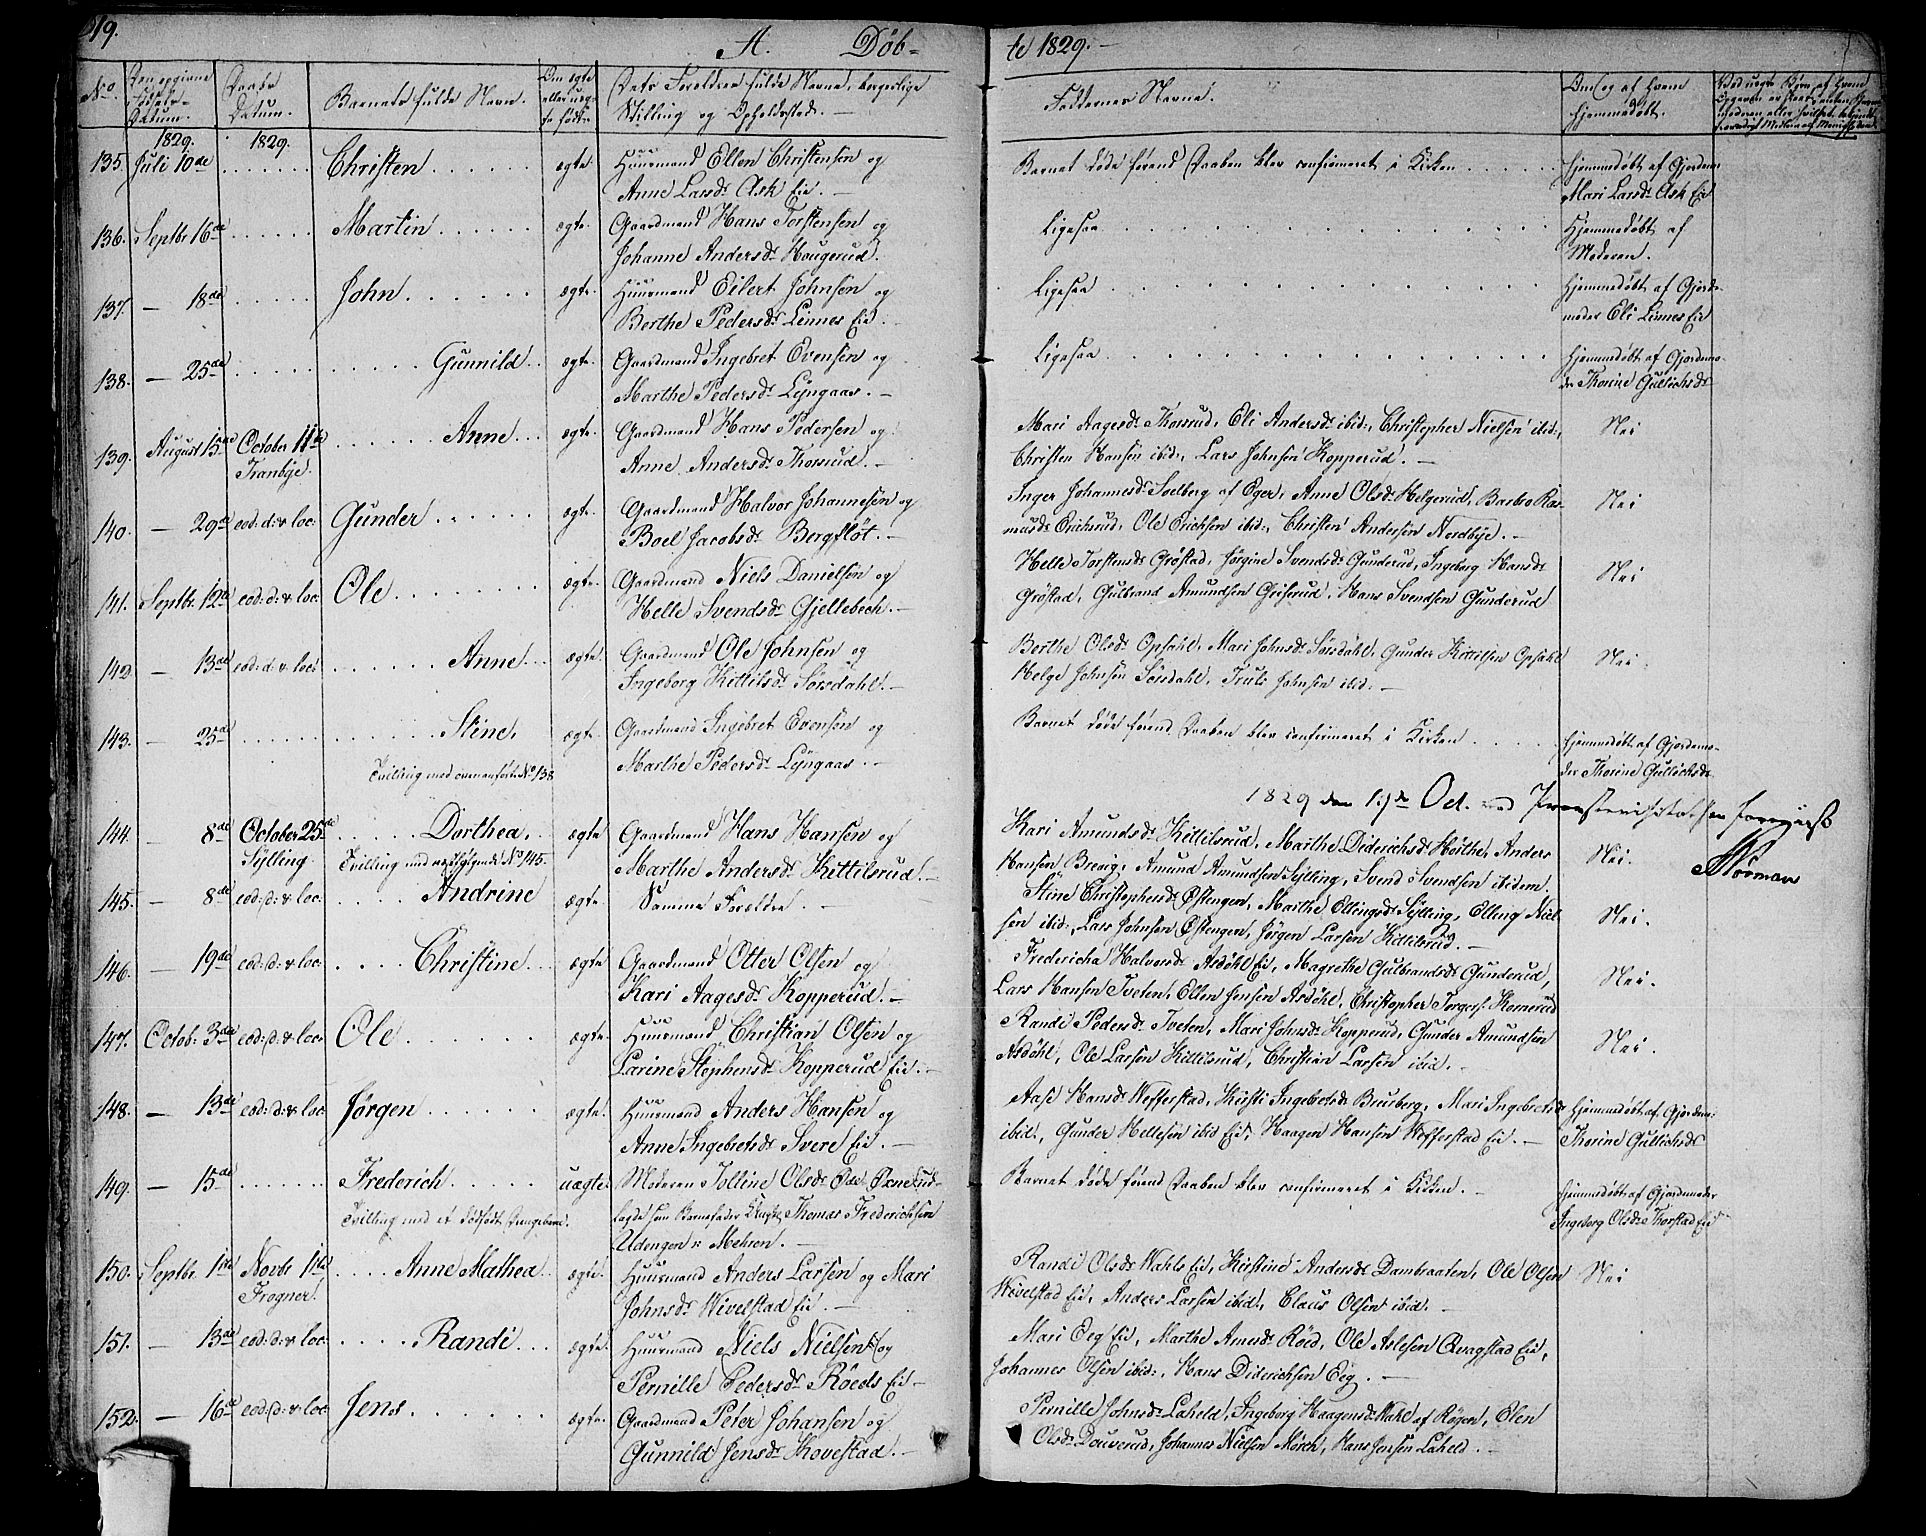 A. Døb-
te 1829.-
No
Den opgivne Fødsels-Datum.
Daabs Datum.
Barnets fulde Navn.
Om ægte eller uægte født.
Dets Forældres fulde Navne, borgerlige Stilling og Opholdssted.-
Faddernes Navne.
Om og af hvem hjemmedøbt.
1829. 1829.
135. Juli 10de Christen ægte Huusmand Ellen Christensen og
Anne Larsdr Ask Eie.-
Barnet døde førend Daaben blev confirmeret i Kirken
Hjemmedøbt af Gjordem:
Mari Larsdr Ask Eie
136. Septbr 16de Martin ægte. Gaardmand Hans Torstensen og
Johanne Andersdr Hougerud.
Ligesaa
Hjemmedøbt af
Moderen.
137. - 18de John ægte. Huusmand Eilert Johnsen og
Berthe Pedersdr Linnes Eie.-
Ligesaa
Hjemmedøbt af Gjorde-
moder Eli Linnes Eie
138. - 25de Gunnild ægte. Gaardmand Ingebret Evensen og
Marthe Pedersdr Lyngaas.-
Ligesaa
Hjemmedøbt af Gjordemo-
der Thorine Gullichsdr
139. August 15de October 11te Anne ægte. Gaardmand Hans Pedersen og
Tranbye. Anne Andersdr Thorsrud.-
Mari Aagesdr Thorsrud, Eli Andersdr ibid:, Christopher Nielsen ibid:,
Christen Hansen ibid:, Lars Johnsen Kopperud.-
Nei
140. - 29de eod: d: & loc: Gunder ægte. Gaardmand Halvor Johannesen og
Boel Jacobsdr Bergfløt.-
Inger Johannesdr Solberg af Eger, Anne Olsdr Helgerud, Barbro Ras-
musdr Eriksrud, Ole Erichsen ibid:, Christen Andersen Nordbye.-
Nei
141. Septbr. 12te eod: d: & loc: Ole ægte. Gaardmand Niels Danielsen og
Helle Svendsdr Gjellebech.-
Helle Torstensdr Grøstad, Jørgine Svendsdr Gunderud, Ingeborg Hansdr
Grøstad, Gulbrand Amundsen Griserud, Hans Svendsen Gunderud
Nei
142. - 13de eod: d: & loc: Anne ægte. Gaardmand Ole Johnsen og
Ingeborg Kittilsdr Sørsdahl.-
Berthe Olsdr Opsahl, Mari Johnsdr Sørsdahl, Gunder Kittilsen Opsahl
Helge Johnsen Sørsdahl, Truls Johnsen ibid.-
Nei.
143. - 25de Stine, ægte. Gaardmand Ingebret Evensen og
Tvilling med ovenanførte No 138 Marthe Pedersdr Lyngaas.-
Barnet døde førend Daaben blev confirmeret i Kirken
Hjemmedøbt af Gjordemo-
der Thorine Gullichsdr
1829 den 19de Oct. ved Provstevisitatsen foreviist
Nörman
144. - 8de October 25de Dorthea, ægte Gaardmand Hans Hansen og
Sylling Tvilling med næstfølgende No 145. Marthe Andersdr Kittilsrud.-
Kari Amundsdr Kittilsrud, Marthe Diderichsdr Hørthe, Anders
Hansen Brevig, Amund Amundsen Sylling, Svend Svendsen ibidem.
Nei.
145. - 8de eod: d: & loc: Andrine ægte. Samme Forældre.-
Stine Christophersdr Østengen, Marthe Ellingsdr Sylling, Elling Niel-
sen ibid:, Lars Johnsen Østengen, Jørgen Larsen Kittilsrud.-
Nei.
146. - 19de eod: d: & loc: Christine ægte Gaardmand Otter Olsen og
Kari Aagesdr Kopperud.-
Fredericha Halvorsdr Asdøhl Eie, Magrethe Gulbrandsdr Gunderud,
Lars Hansen Tveten, Ellen Jensen Asdøhl, Christopher Torgers. Komerud
Nei.
147. Octob: 3die eod: d: & loc: Ole ægte. Huusmand Christian Olsen og
Larine Stephensdr Kopperud Eie.-
Randi Pedersdr Tveten, Mari Johnsdr Kopperud, Gunder Amundsen
Asdøhl, Ole Larsen Kittilsrud, Christian Larsen ibid.-
Nei.
148. - 13de eod: d: & loc: Jørgen ægte. Huusmand Anders Hansen og
Anne Ingebretsdr Svere Eie.-
Aase Hansdr Wefferstad, Kirsti Ingebretsdr Brusberg, Mari Ingebretsdr
ibid., Gunder Hellesen ibid Eie, Haagen Hansen Wefferstad Eie.-
Hjemmedøbt af Gjordem:
Thorine Gullichsdr
149. - 15de Frederich uægte. Moderen Jolline Olsdr Øde Øxne, ud-
Tvilling med et dødfødt Drengebarn. lagde som Barnefader Thomas Frederichsen
Udengen i Mehren.-
Barnet døde førend Daaben blev confirmeret i Kirken.-
Hjemmedøbt af Gjordemoder
Ingeborg Olsdr Thorstad Eie
150. Septbr 1ste Novbr 1ste Anne Mathea ægte. Huusmand Anders Larsen og Mari
Frogner. Johnsdr Wivelstad Eie.-
Randi Olsdr Wahls Eie, Kirstine Andersdr Dambraaten, Ole Olsen
Wivelstad Eie, Anders Larsen ibid., Claus Olsen ibid.-
Nei
151. - 13de eod: d: & loc: Randi ægte. Huusmand Niels Nielsen og
Pernille Pedersdr Røeds Eie-
Mari Eeg Eie, Marthe Arnesdr Röed, Ole Aslesen Qvagstad Eie,
Johannes Olsen ibid:, Hans Diderichsen Eeg.-
152. - 16de eod: d: & loc: Jens ægte. Gaardmand Peter Johansen og
Gunnild Jensdr Kovestad.-
Pernille Johnsdr Laheld, Ingeborg Haagensdr Wahl af Røgen, Elen
Olsdr Douverud, Johannes Nielsen Mörch, Hans Jensen Laheld.-